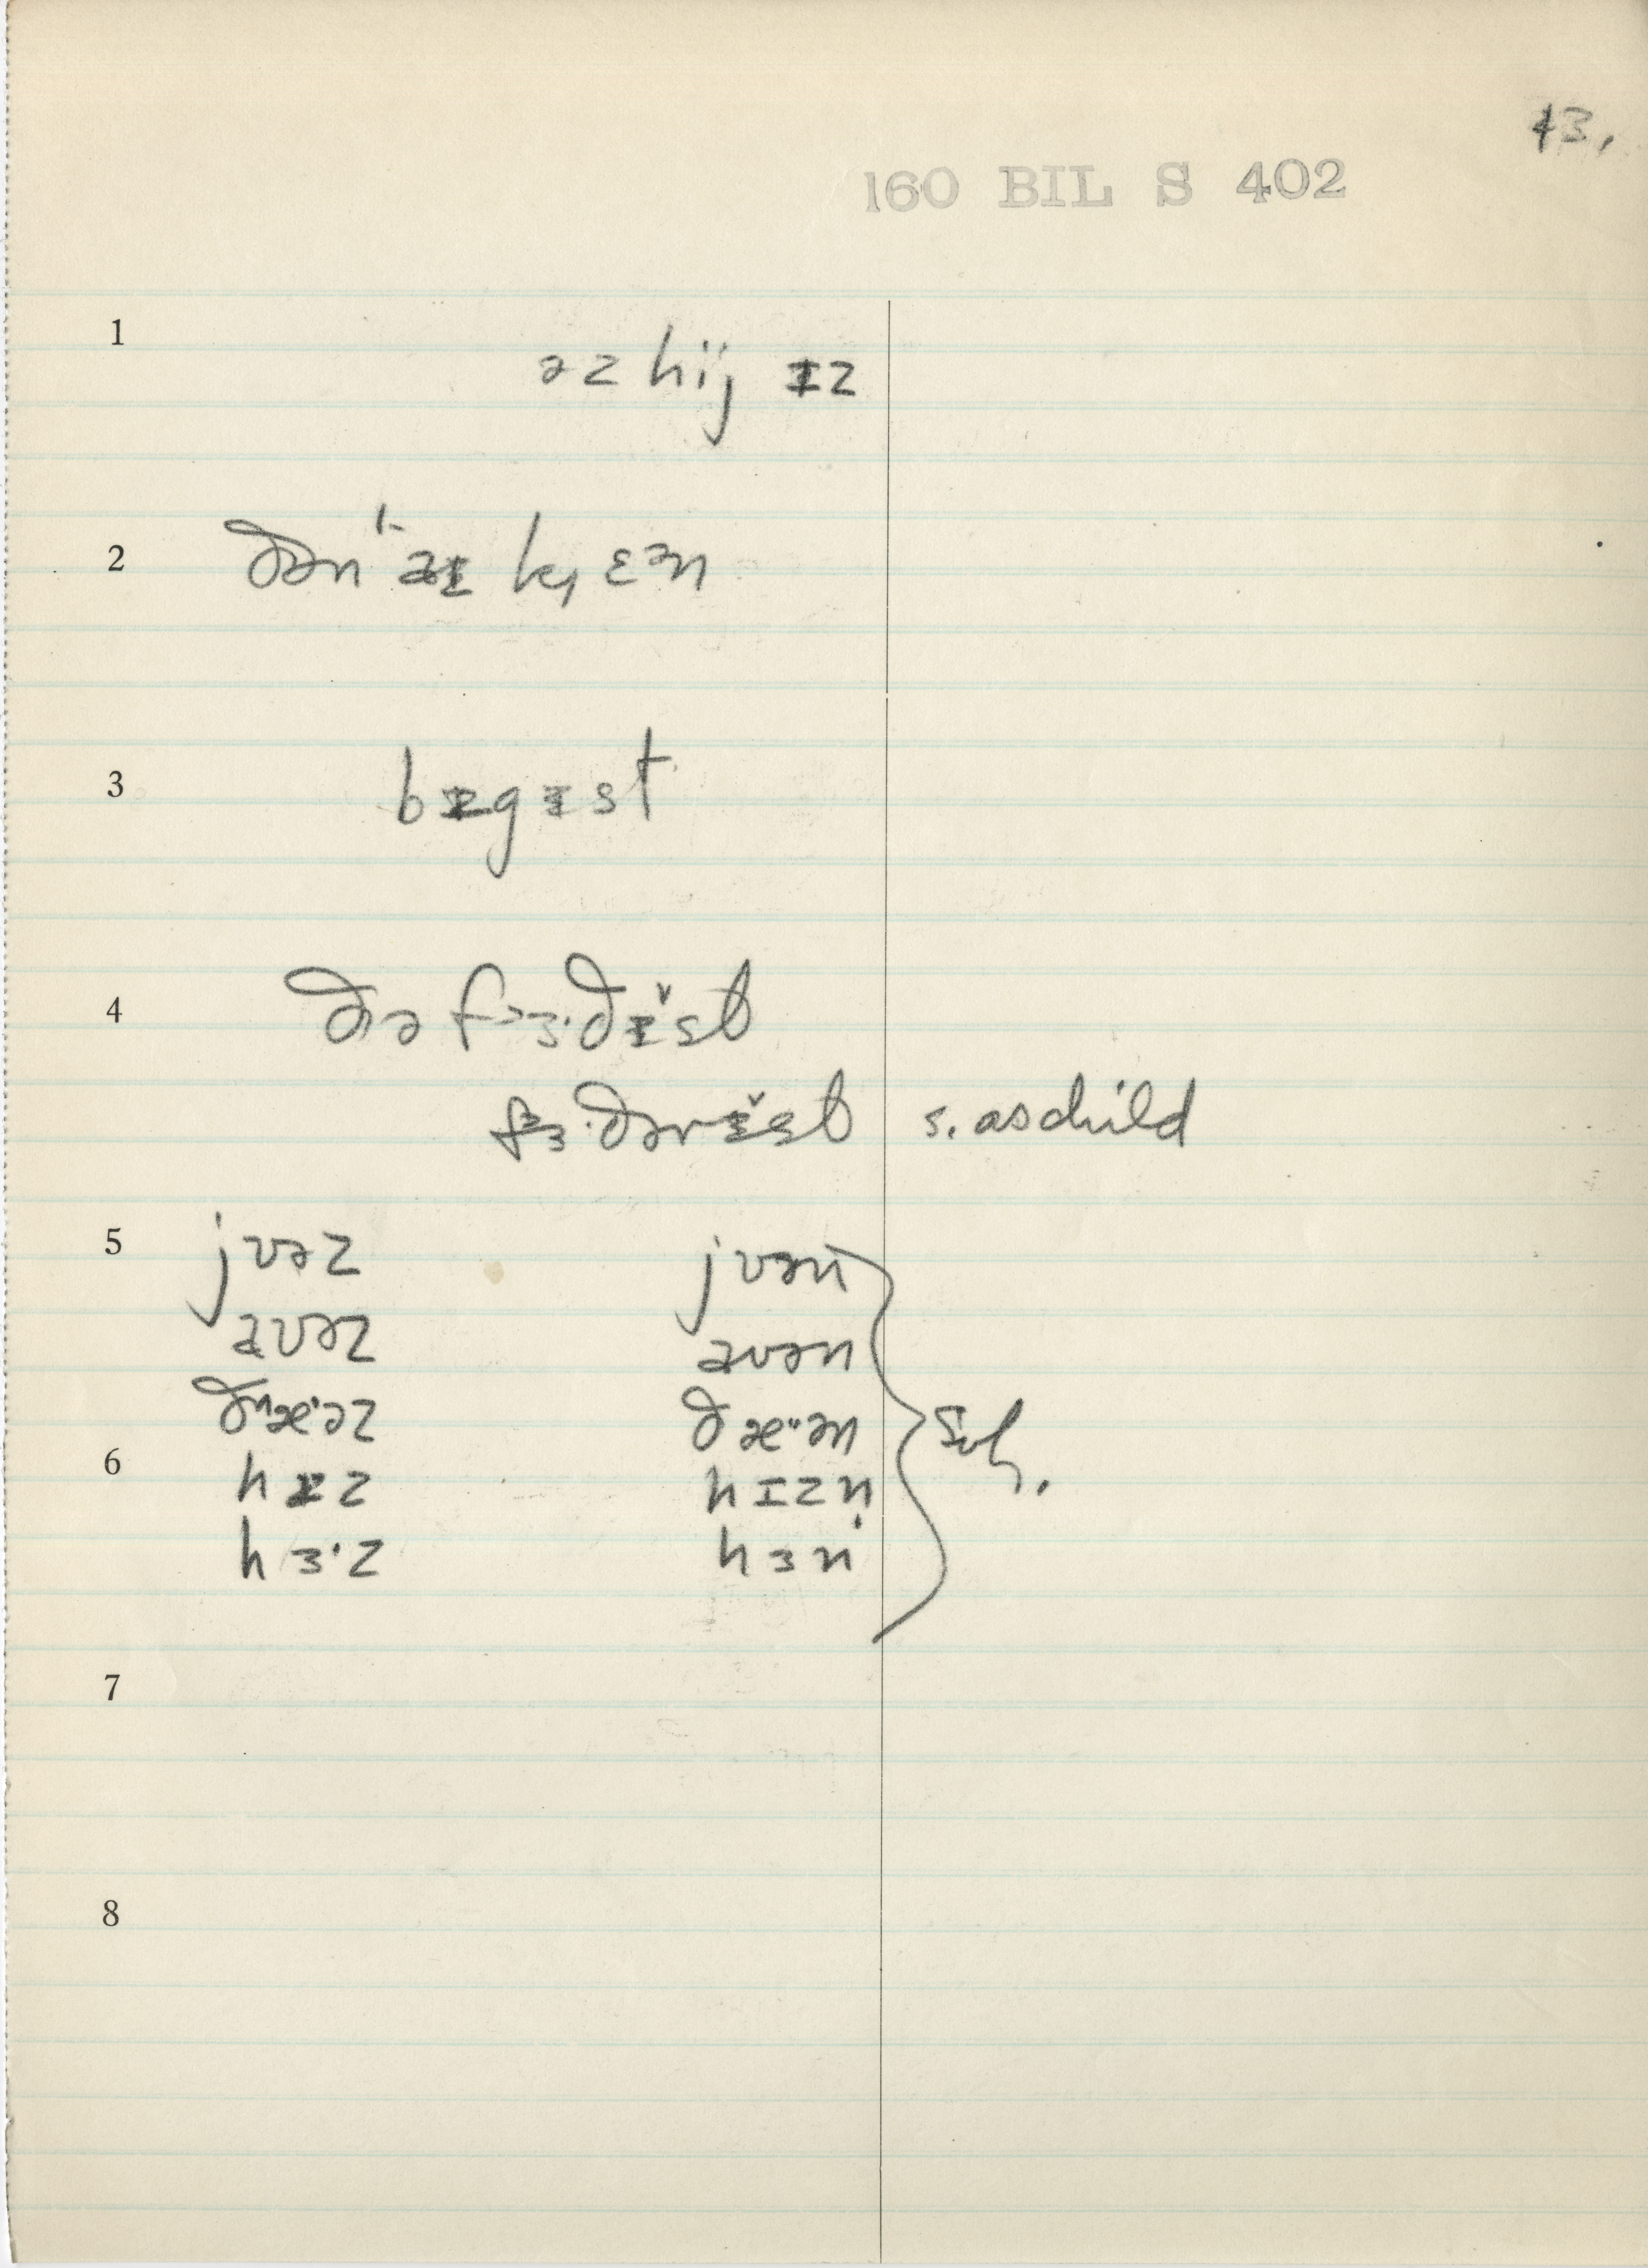 43.
160 BIL S 402
1 əz hij ɪz
2 ðən aɪ k ɛən
3 bɪgɪst
4 ðə fɜ·ðɪ̌st
fɜ·ðərɪ̌st s. as child
5 jʊəz jʊən
aʊəz aʊən
ðæ·əz ðæ·ən
6 hɪz hɪzn̩ Sub.
hɜ·z hɜn
7
8